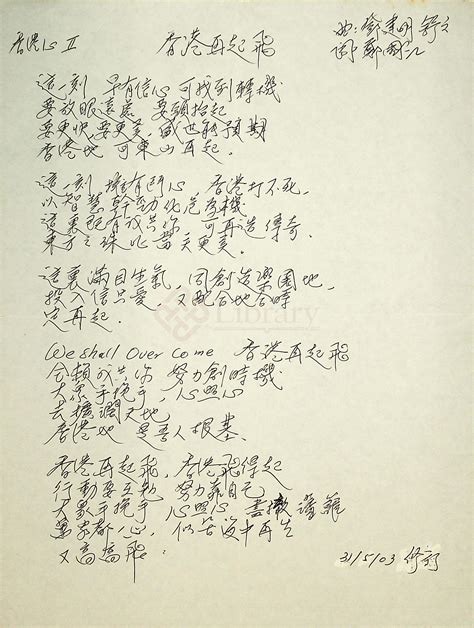 香港心 II 香港再起飛 曲：鄧建明 舒文
詞 鄭國江
這一刻 早有信心 可找到轉機
要放眼遠處 要頭抬起
要更快 要更美 盛世能預期
香港地 可東山再起
這一刻 擁有鬥心，香港打不死，
以智慧 幹勁 化危為機
這裏既有我共你 可再造傳奇
東方之珠 比當天更美
這裏滿目生氣，同創造樂園地，
投入信只愛 又配合地合時
定再起
We shall Over come 香港再起飛
全賴我共你 努力創時機
大家手挽手，心照心
去擴闊天地
香港地 是吾人根基
香港再起飛，香港飛得起
行動要互勉 努力靠自己
大家手挽手 心照心 籬
萬衆都一心，似苦海中再生
又高高飛
31/5/03 修訂
Library